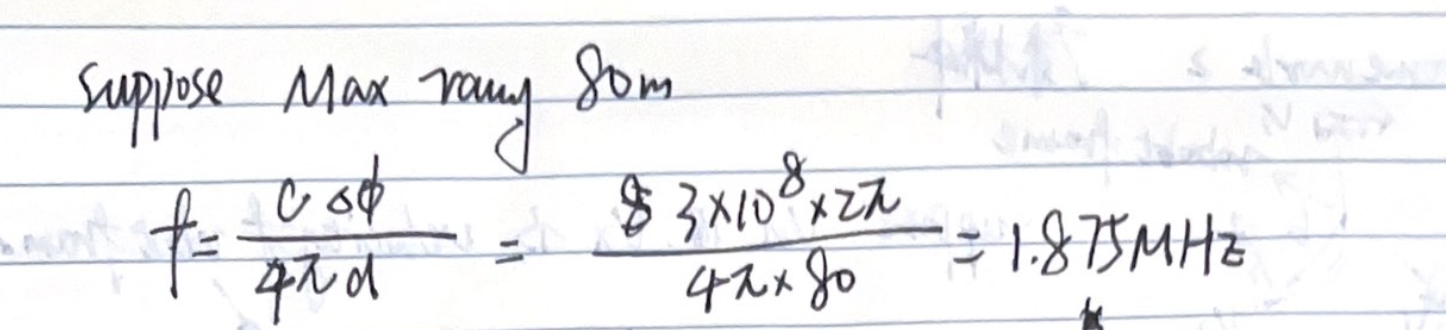 Suppose Max rang 80m
f = cΔϕ / 4πd = 3×10⁸×2π / 4π×80 = 1.875MHz